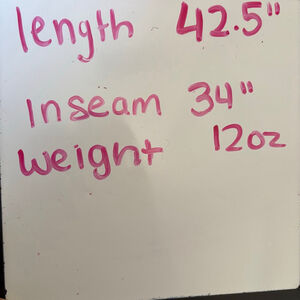 length 42.5"
Inseam 34"
weight 12oz